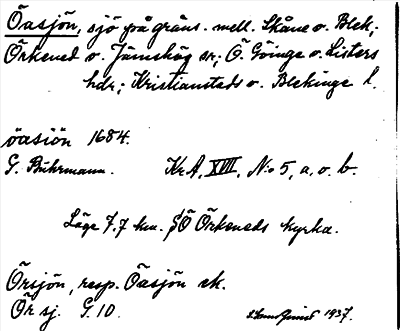 Öasjön, sjö på gräns. mell. Skåne o. Blek.;
Örkened o. Jämshög sn; Ö. Göinge o. Listers
hdr; Kristianstads o. Blekinge l.
öasiön 1684.
G. Buhrmann. Kr.A, XVIII, N:o 5, a. o. b.
Läge 7.7 km. SÖ Örkeneds kyrka.
Örsjön, resp. Öasjön ek.
Ör sj. G.10. 1937.